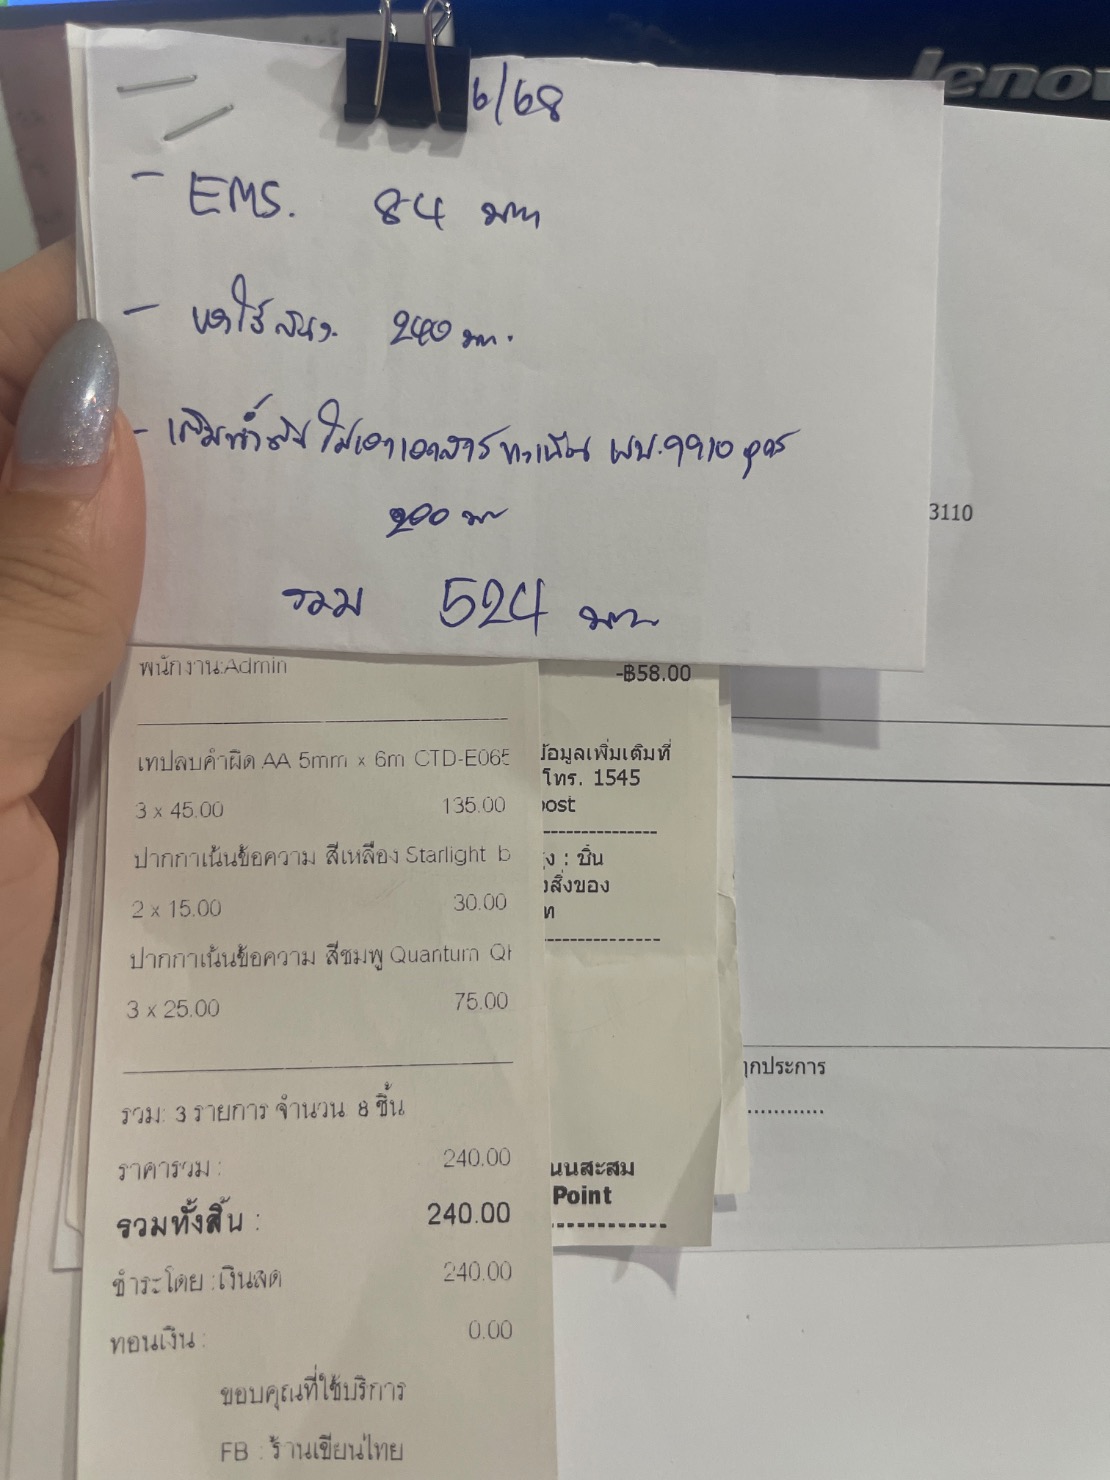 lenov
6/68
- EMS. 84 บาท
- ของใช้ สนง. 240 บาท.
- เติมน้ำมัน ไปเอาเอกสาร ทะเบียน
200 บาท
รวม 524 บาท
3110
พนักงาน:Admin
-฿58.00
เทปลบคำผิด AA 5mm x 6m CTD-E065
3 x 45.00 135.00
ปากกาเน้นข้อความ สีเหลือง Starlight b
2 x 15.00 30.00
ปากกาเน้นข้อความ สีชมพู Quantum QH
3 x 25.00 75.00
รวม: 3 รายการ จำนวน 8 ชิ้น
ราคารวม : 240.00
รวมทั้งสิ้น : 240.00
ชำระโดย :เงินสด 240.00
ทอนเงิน : 0.00
ขอบคุณที่ใช้บริการ
FB : ร้านเขียนไทย
ข้อมูลเพิ่มเติมที่
โทร. 1545
post
: ชิ้น
งสิ่งของ
ท
นนสะสม
Point
ทุกประการ